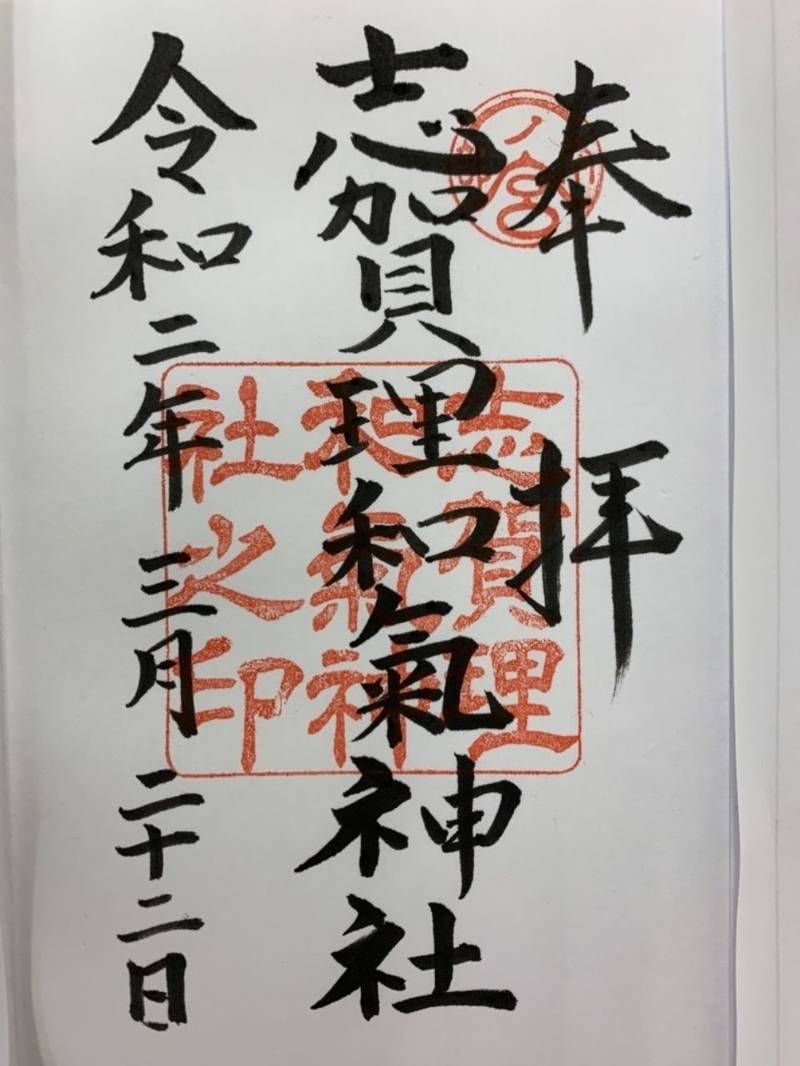 奉拝
志賀理和氣神社
令和二年三月二十二日
志賀理
和氣神
社之印